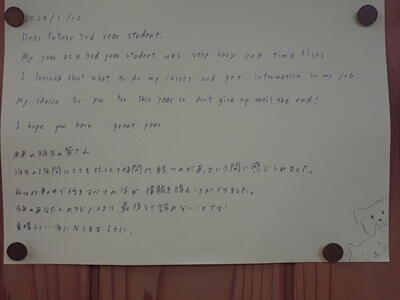 2024/1/12
Dear future 3rd year student.
My year as a 3rd year student was very busy and time flies.
I learned about what to do my career and get information in my job.
My advice for you for this year is don't give up until the end!
I hope you have great year.
未来の3年生の皆さん
3年生の1年間はとても忙しくて時間が経つのがあっという間に感じられました。
私は仕事の中で何をすべきか 情報を得ることができました。
今年のあなたへのアドバイスは、最後まで諦めないことです!
素晴らしい一年になりますように。